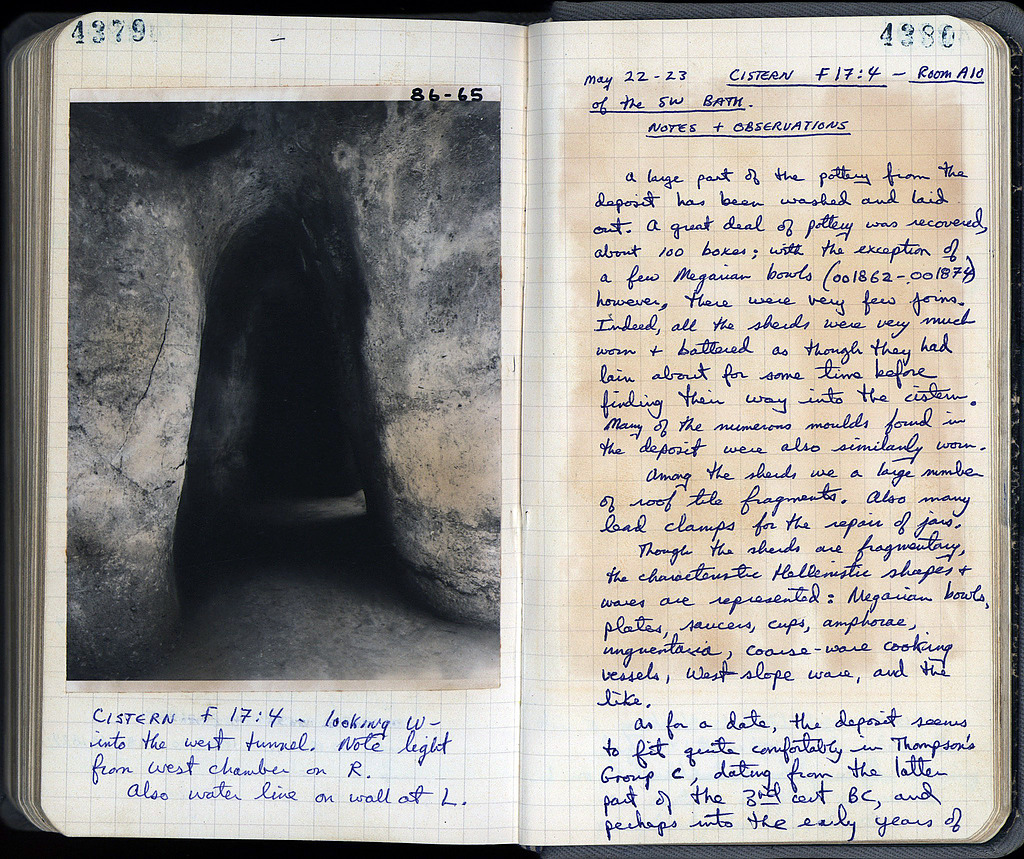 4379
86-65
CISTERN F 17:4 - looking W-
into the west tunnel. Note light
from west chamber on R.
Also water line on wall at L.
4380
May 22-23 CISTERN F 17:4 - Room A10
of the SW BATH.
NOTES + OBSERVATIONS
A large part of the pottery from the
deposit has been washed and laid
out. A great deal of pottery was recovered,
about 100 boxes; with the exception of
a few Megarian bowls (001862-001874)
however, there were very few joins.
Indeed, all the sherds were very much
worn + battered as though they had
lain about for some time before
finding their way into the cistern.
Many of the numerous moulds found in
the deposit were also similarly worn.
Among the sherds we a large number
of roof tile fragments. Also many
lead clamps for the repair of jars.
Though the sherds are fragmentary,
the characteristic Hellenistic shapes +
wares are represented: Megarian bowls,
plates, saucers, cups, amphorae,
unguentaria, coarse-ware cooking
vessels, West slope ware, and the
like.
As for a date, the deposit seems
to fit quite comfortably in Thompson's
Group C, dating from the latter
part of the 3rd cent BC, and
perhaps into the early years of